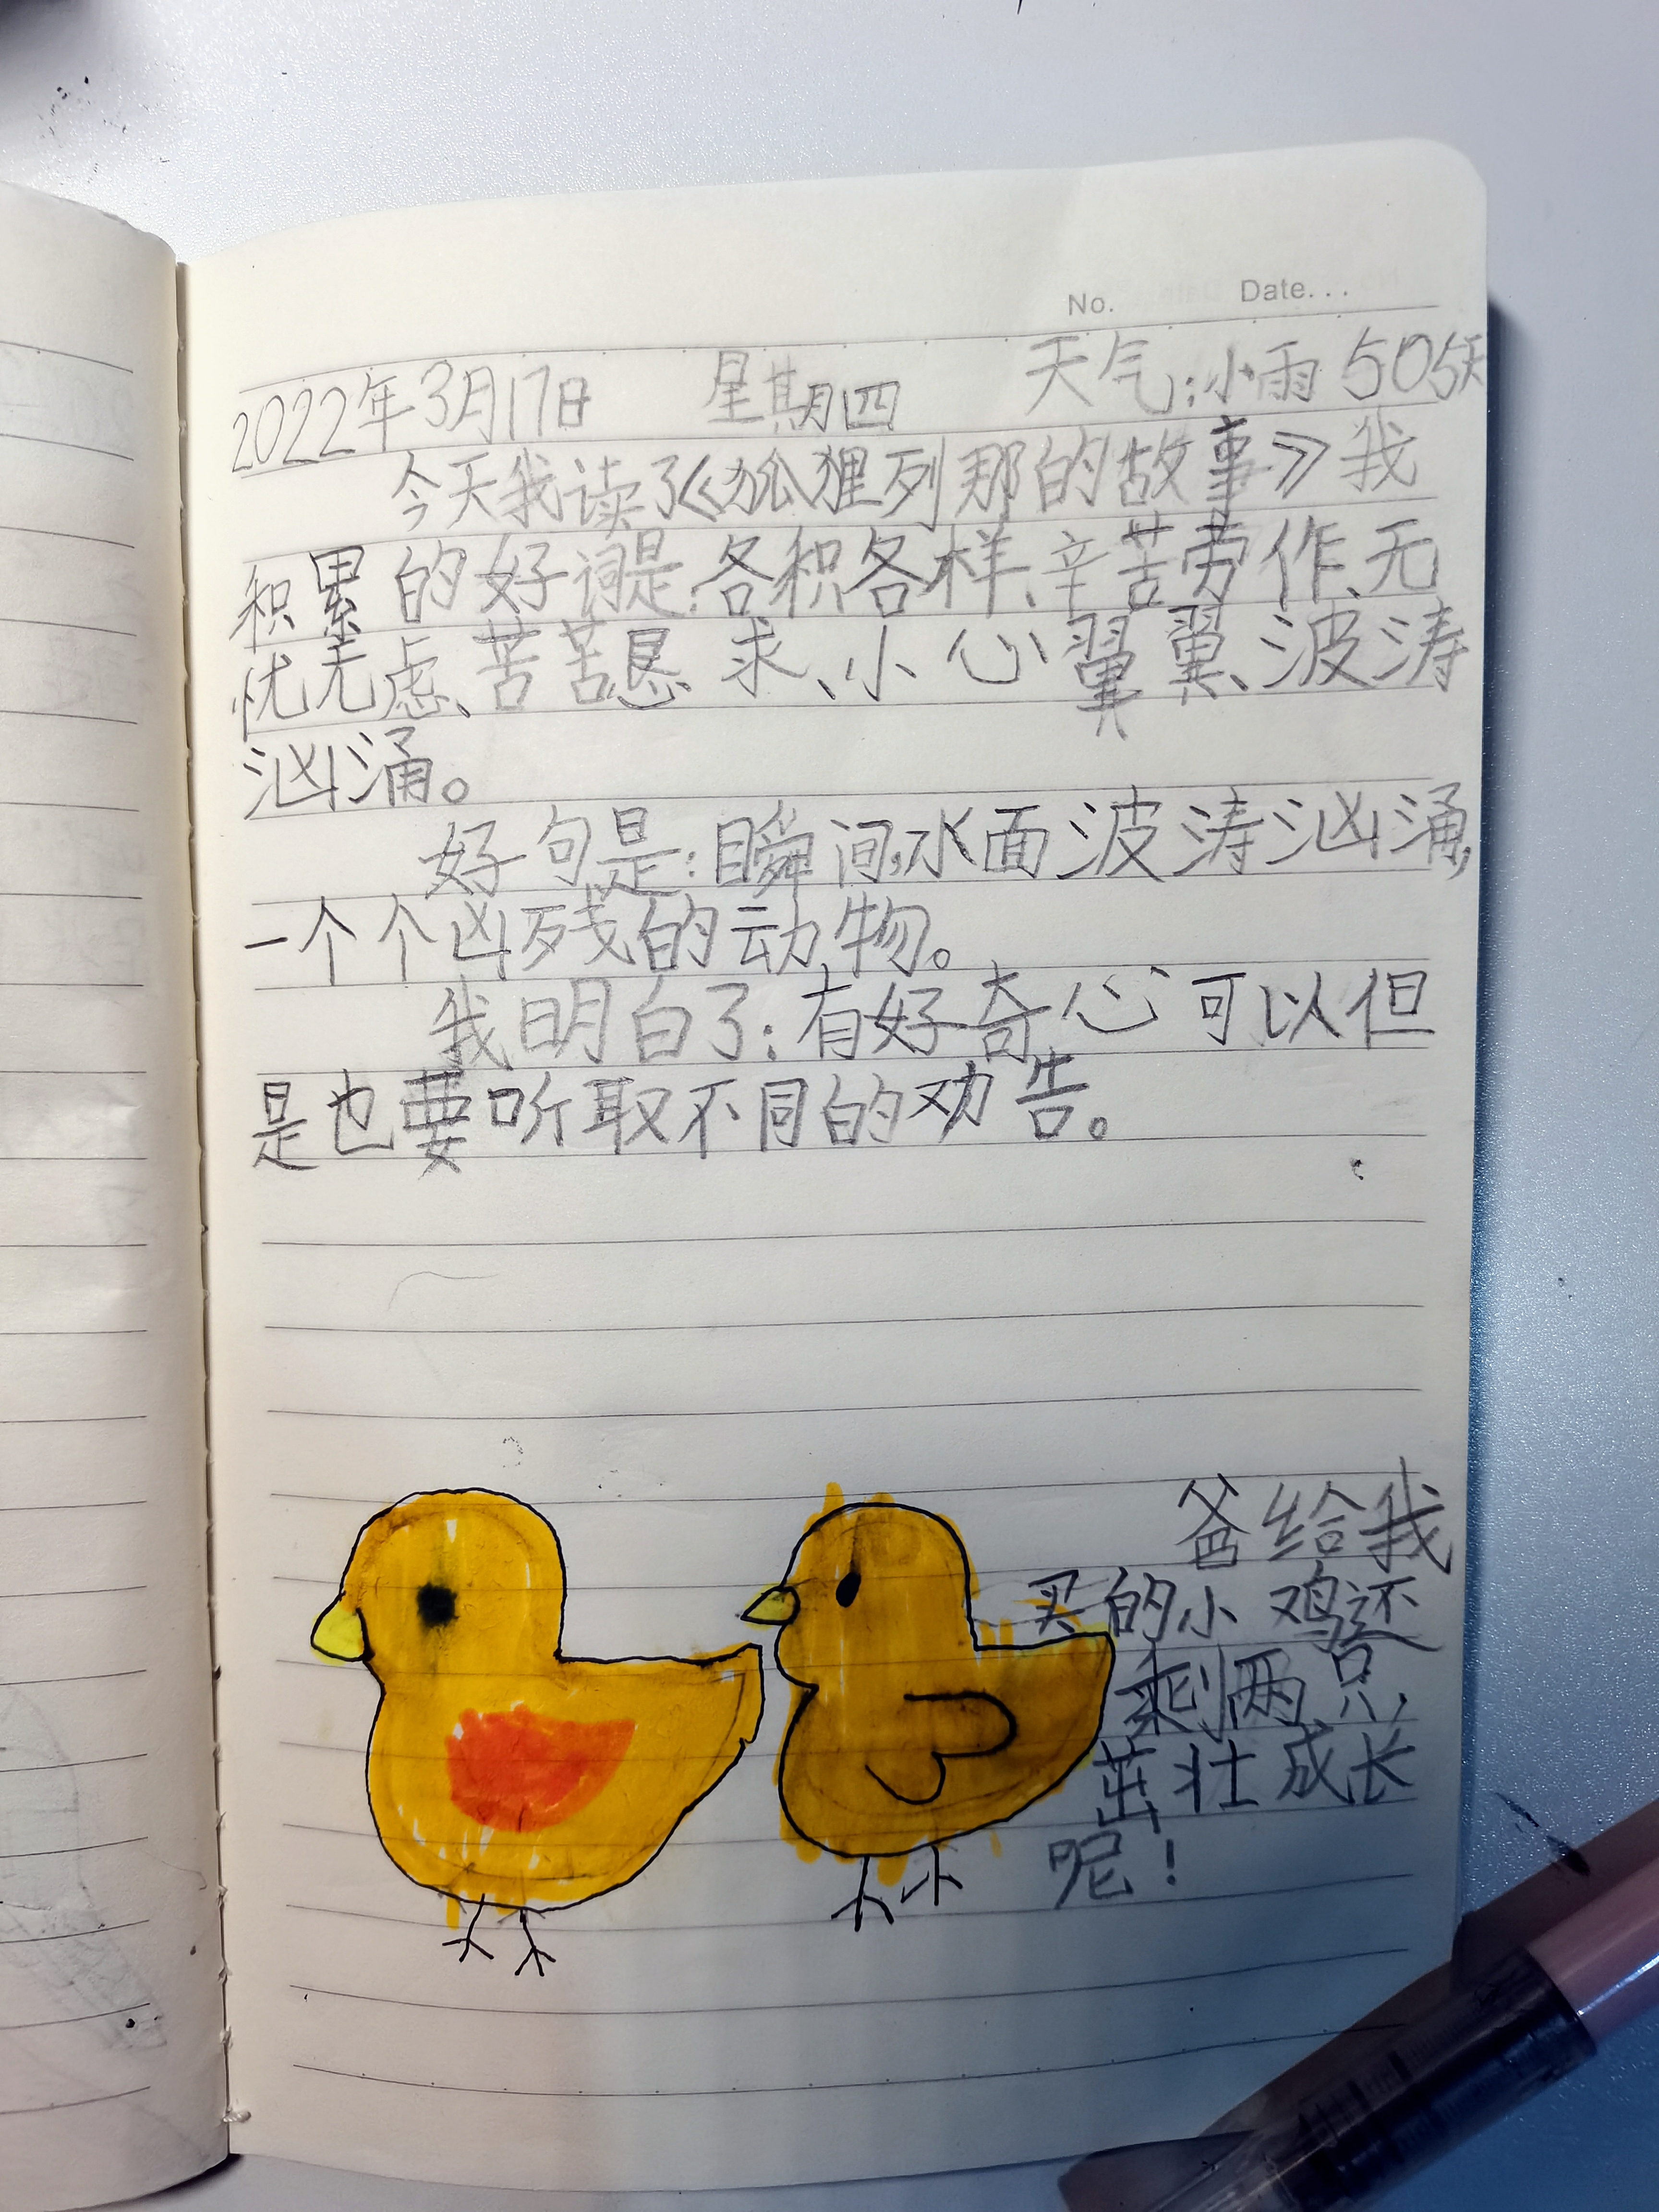 No. Date...
2022年3月17日 星期四 天气:小雨 505天
今天我读了《狐狸列那的故事》我
积累的好词是:各积各样、辛苦劳作、无
忧无虑、苦苦恳求、小心翼翼、波涛
汹涌。
好句是:瞬间,水面波涛汹涌,
一个个凶残的动物。
我明白了:有好奇心可以但
是也要听取不同的劝告。
爸给我
买的小鸡还
剩两只,
茁壮成长
呢!